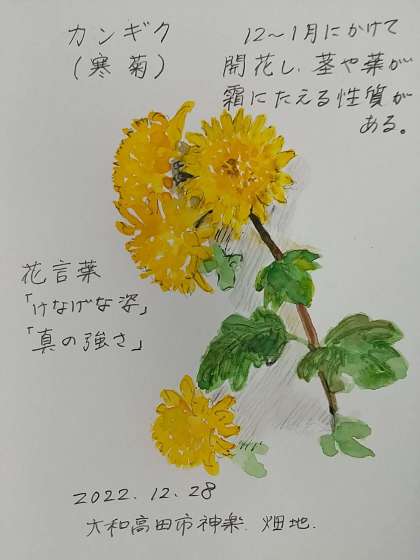 カンギク
(寒菊)
12〜1月にかけて
開花し、茎や葉が
霜にたえる性質が
ある。
花言葉
「けなげな姿」
「真の強さ」
2022.12.28
大和高田市神楽.畑地.